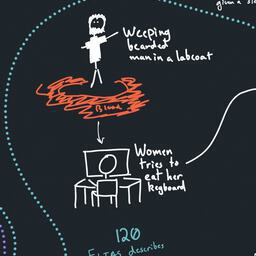 given a
Weeping
bearded
man in a labcoat
Blood
Women
tries to
eat her
keyboard
120
ELIAS describes